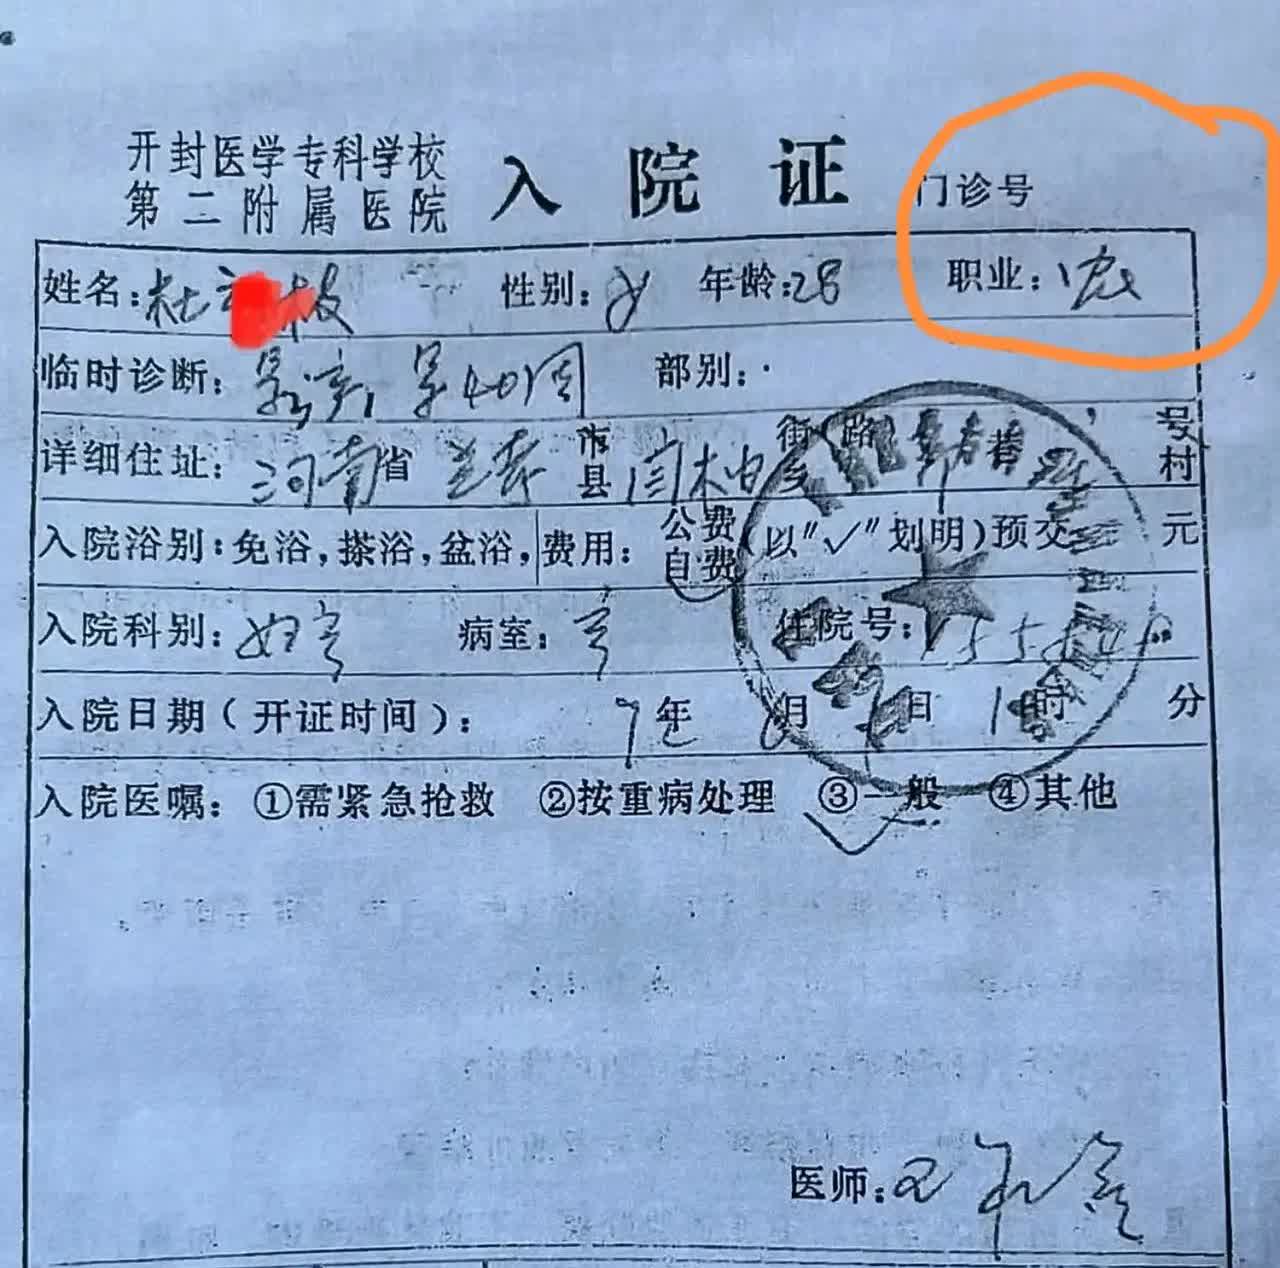 开封医学专科学校
第二附属医院
入院证
门诊号
姓名：杜 枝 性别：女 年龄：28 职业：农
临时诊断： 孕40周 部别：
详细住址：河南省 兰考 市县 闫 街（路） 号村
入院浴别：免浴，搽浴，盆浴， 费用：公费自费（以"√"划明）预交 元
入院科别：妇产 病室：产 住院号：
入院日期（开证时间）： 年 月 日 时 分
入院医嘱：①需紧急抢救 ②按重病处理 ③一般 ④其他
医师：